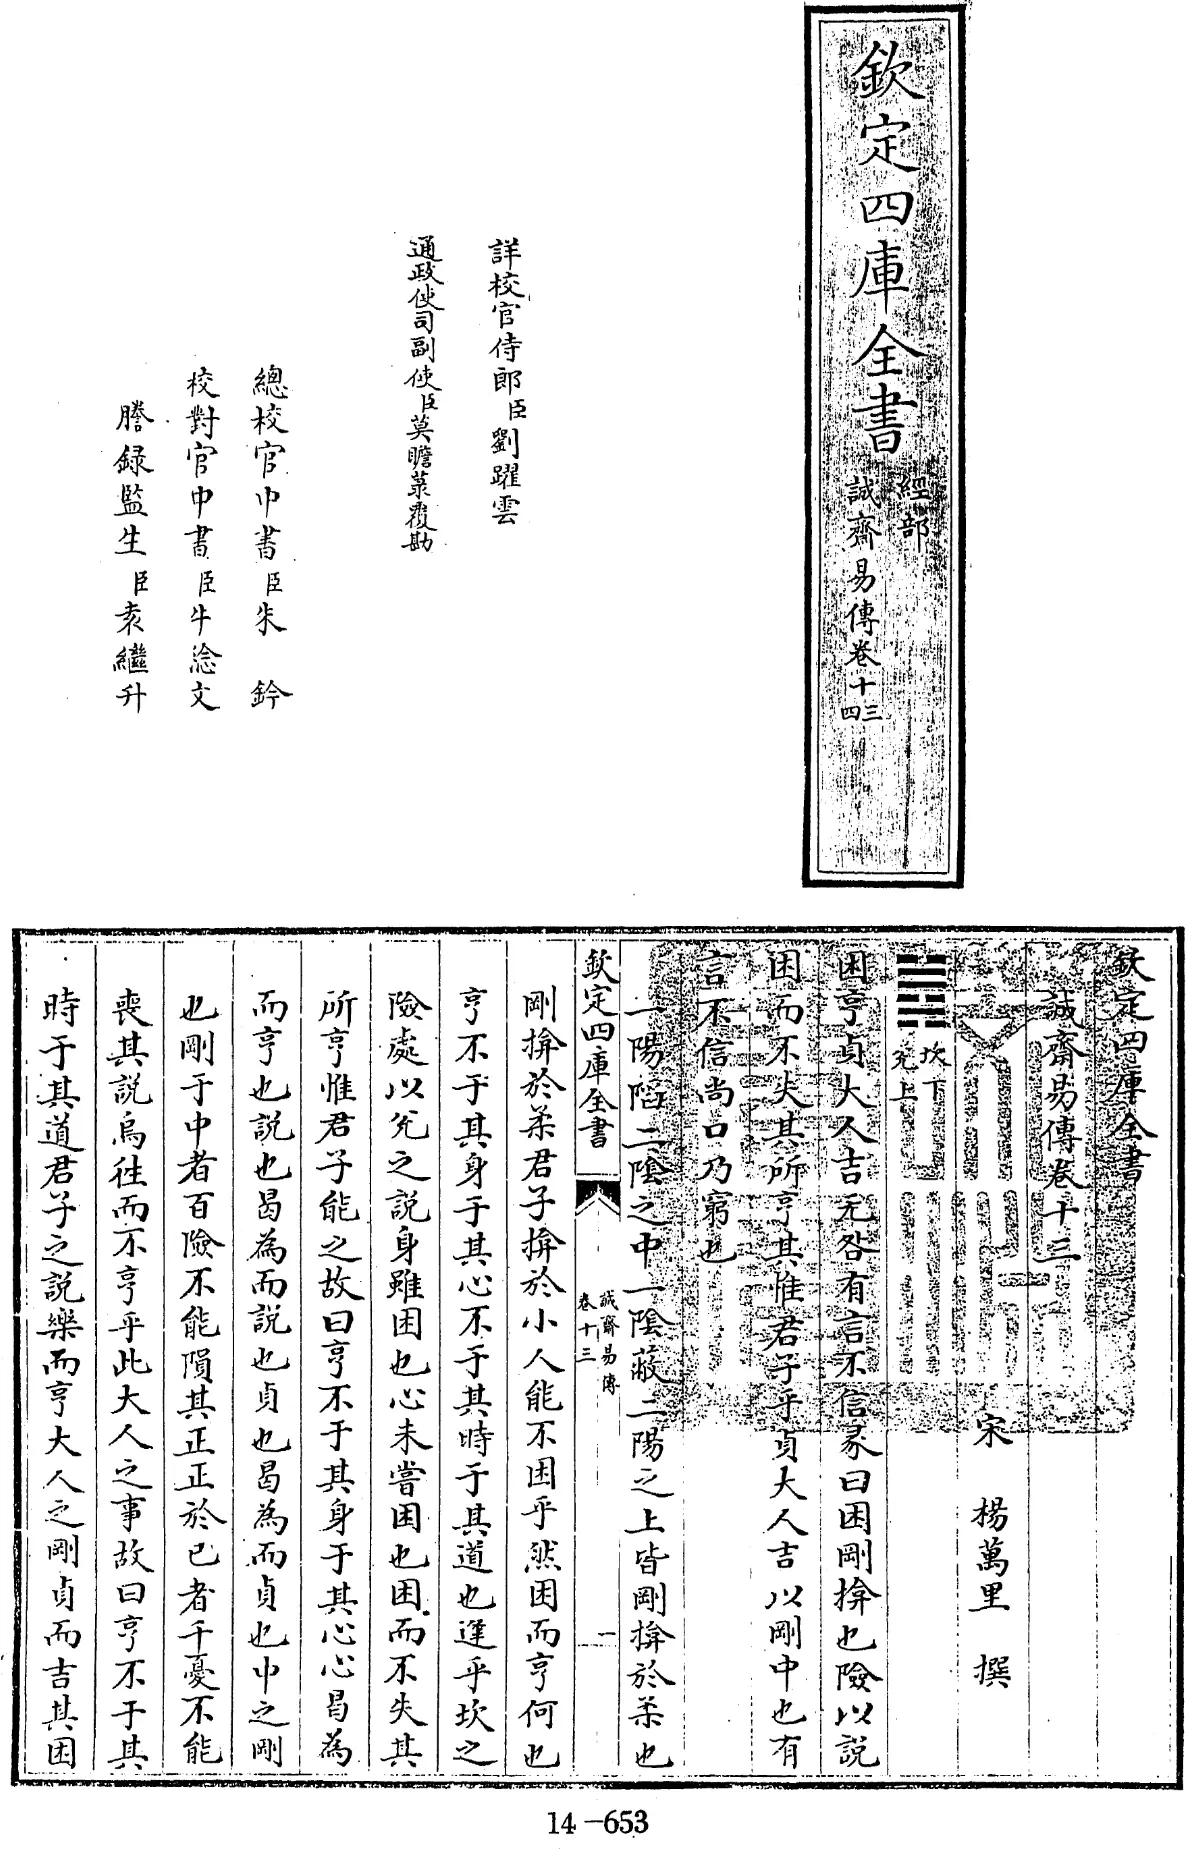 欽定四庫全書
經部
誠齋易傳卷十三
四
詳校官侍郎臣劉躍雲
通政使司副使臣莫瞻菉覆勘
總校官中書臣朱鈐
校對官中書臣牛稔文
謄録監生臣袁繼升
欽定四庫全書
誠齋易傳卷十三
宋 楊萬里 撰
坎下
兌上
困亨貞大人吉无咎有言不信彖曰困剛揜也險以說
困而不失其所亨其惟君子乎貞大人吉以剛中也有
言不信尚口乃窮也
一陽陷二陰之中一陰蔽二陽之上皆剛揜於柔也
欽定四庫全書
誠齋易傳
卷十三
一
剛揜於柔君子揜於小人能不困乎然困而亨何也
亨不于其身于其心不于其時于其道也逢乎坎之
險處以兌之説身雖困也心未嘗困也困而不失其
所亨惟君子能之故曰亨不于其身于其心心曷為
而亨也説也曷為而説也貞也曷為而貞也中之剛
也剛于中者百險不能隕其正正於已者千憂不能
喪其説烏往而不亨乎此大人之事故曰亨不于其
時于其道君子之説樂而亨大人之剛貞而吉其困
14-653